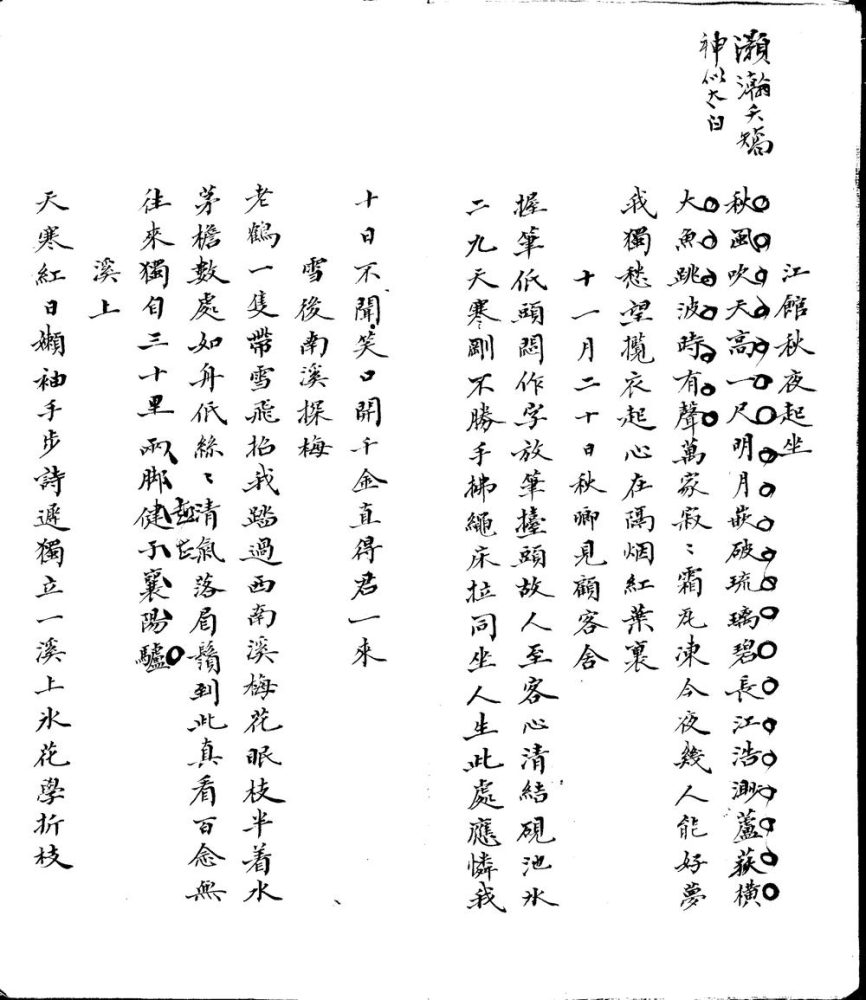 灝瀚夭矯
神似太白
江館秋夜起坐
秋風吹天高一尺明月嵌破琉璃碧長江浩渺蘆荻橫
大魚跳波時有聲萬家寂〻霜瓦凍今夜幾人能好夢
我獨愁望攬衣起心在隔烟紅葉裏
十一月二十日秋卿見顧客舍
握筆低頭悶作字放筆擡頭故人至客心清結硯池氷
二九天寒剛不勝手拂繩床拉同坐人生此處應憐我
十日不開笑口開千金直得君一來
雪後南溪探梅
老鶴一隻帶雪飛招我踏過西南溪梅花眠枝半着水
茅檐數處如舟低絲〻清氣落眉鬚到此真看百念無
往來獨自三十里兩脚健于襄陽驢
溪上
天寒紅日嬾袖手步詩遲獨立一溪上氷花學折枝